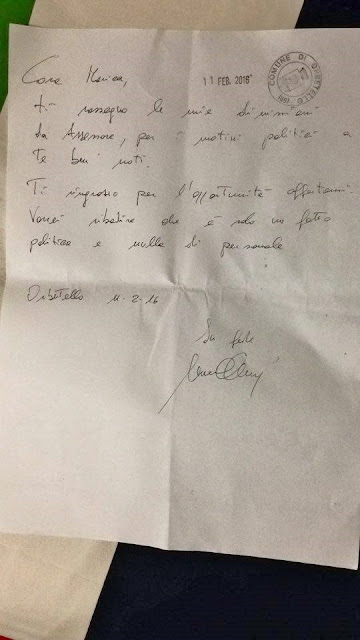 Cara Monica, 11 FEB. 2016
COMUNE DI ORBETELLO
ti rassegno le mie dimissioni
da Assessore, per i motivi politici a
Te ben noti.
Ti ringrazio per l'opportunità offertami.
Vorrei ribadire che è solo un fatto
politico e nulla di personale
Orbetello 11.2.16
In fede